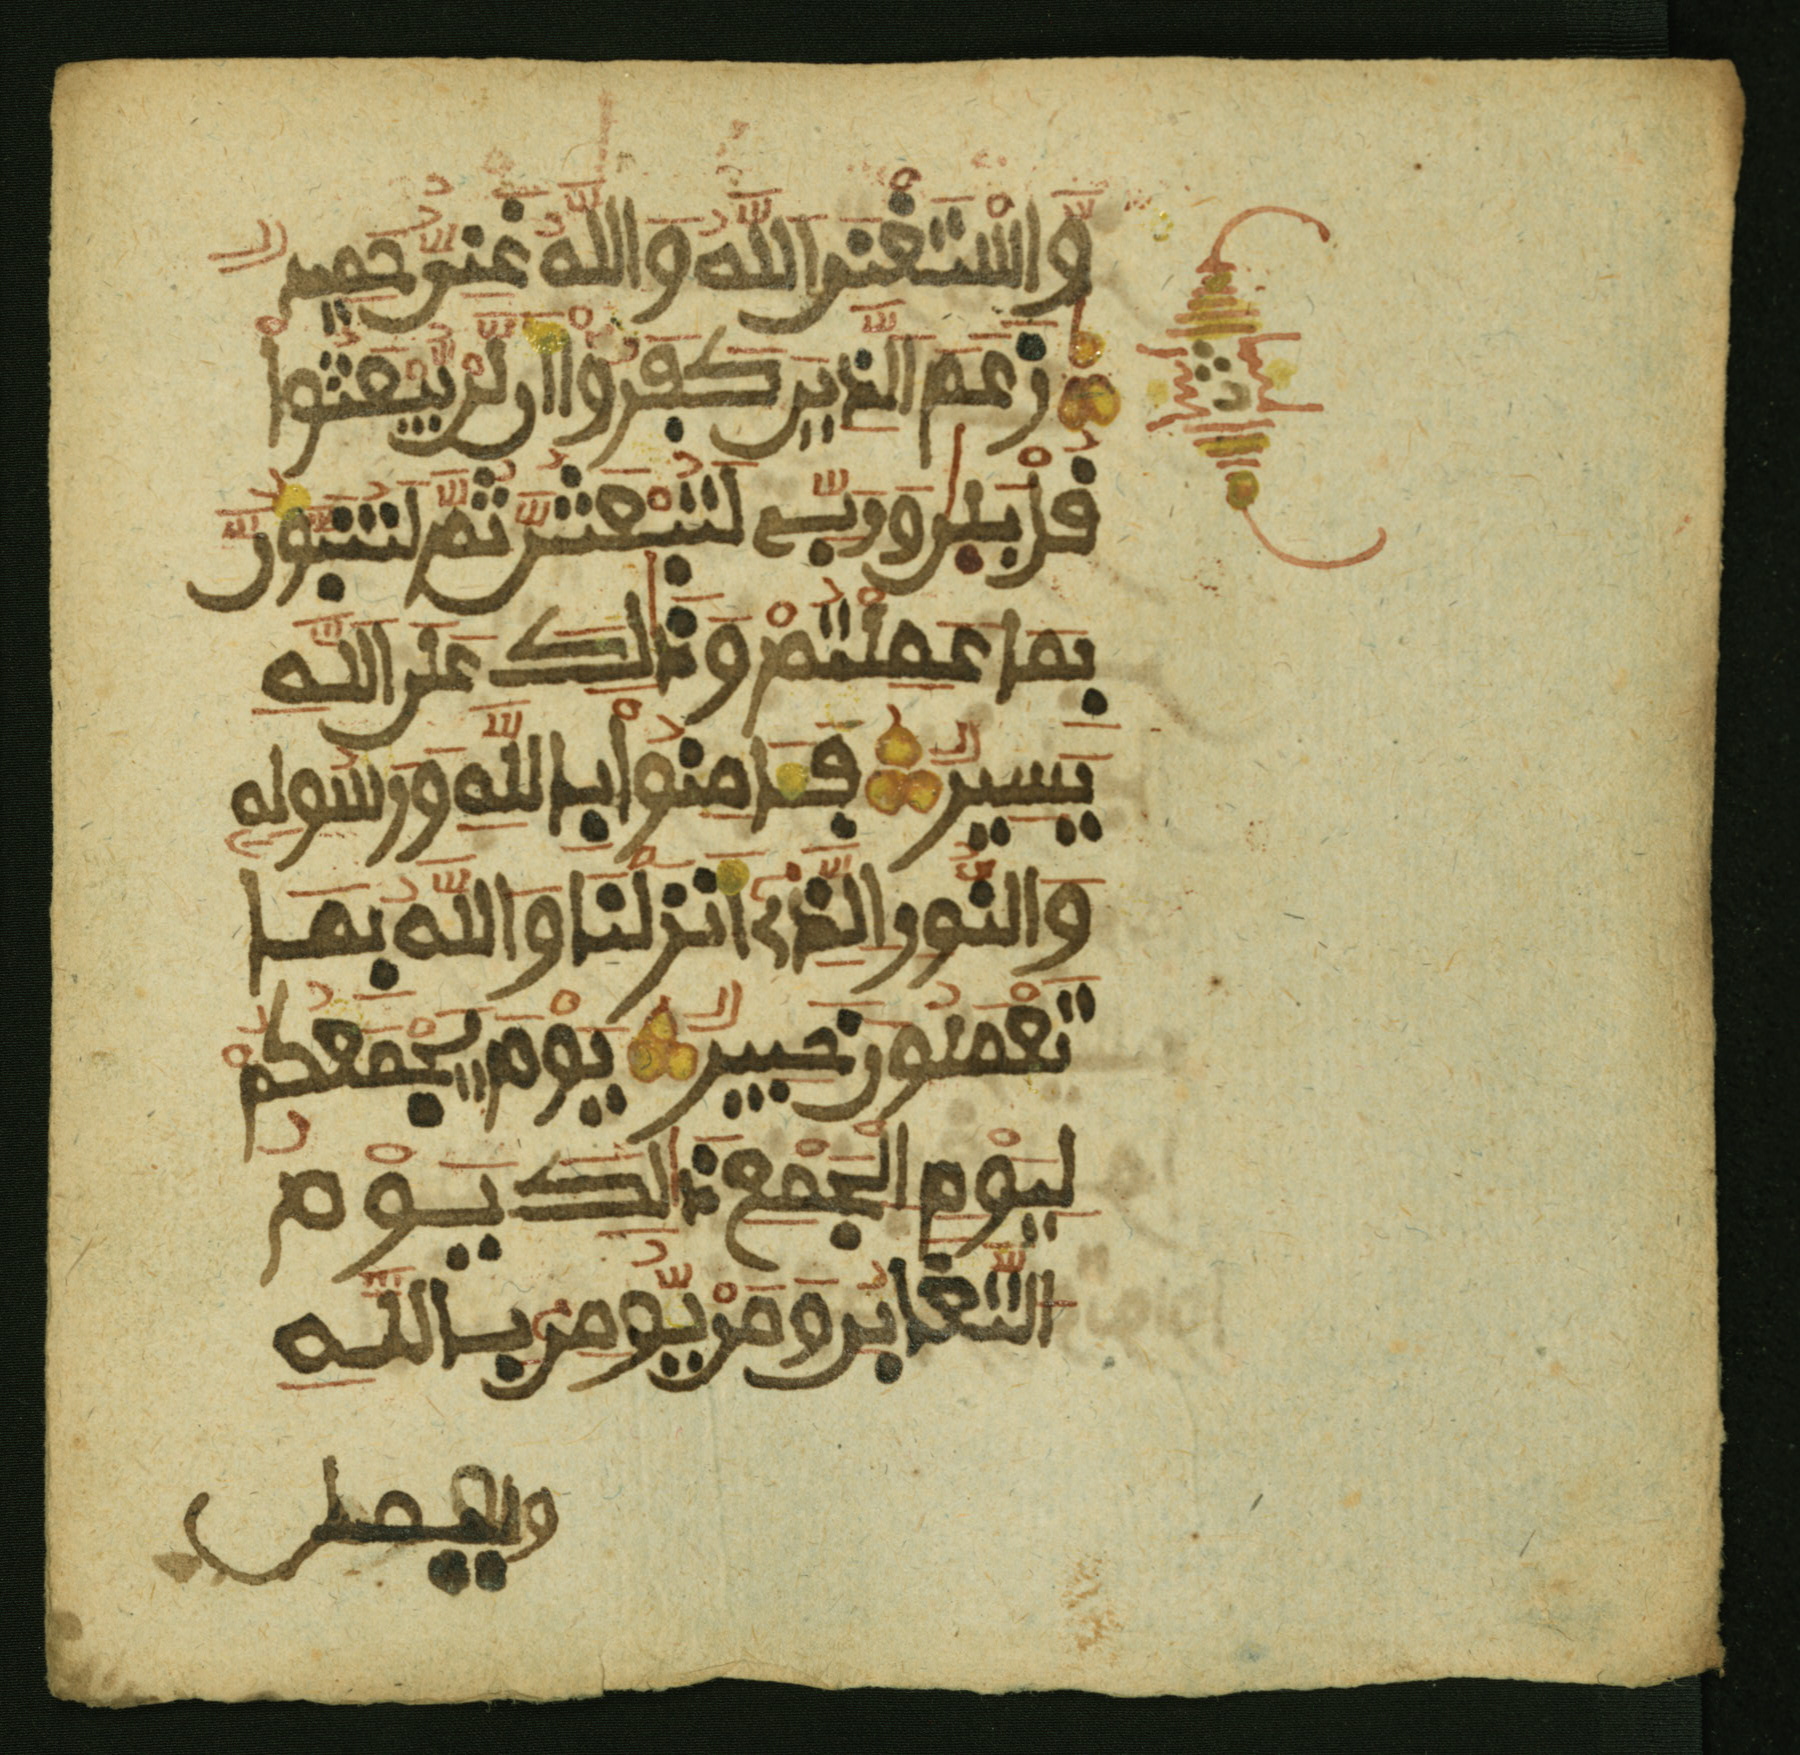 وَاسْتَغْنَى اللَّهُ وَاللَّهُ غَنِيٌّ حَمِيدٌ
زَعَمَ الَّذِينَ كَفَرُوا أَن لَّن يُبْعَثُوا
قُلْ بَلَىٰ وَرَبِّي لَتُبْعَثُنَّ ثُمَّ لَتُنَبَّؤُنَّ
بِمَا عَمِلْتُمْ وَذَٰلِكَ عَلَى اللَّهِ
يَسِيرٌ فَـَٔامِنُوا بِاللَّهِ وَرَسُولِهِ
وَالنُّورِ الَّذِي أَنزَلْنَا وَاللَّهُ بِمَا
تَعْمَلُونَ خَبِيرٌ يَوْمَ يَجْمَعُكُمْ
لِيَوْمِ الْجَمْعِ ذَٰلِكَ يَوْمُ
التَّغَابُنِ وَمَن يُّومِنۢ بِاللَّهِ